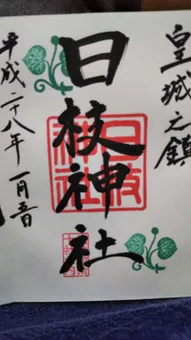 皇城之鎮
日枝神社
日枝神社
平成二十八年一月吾日